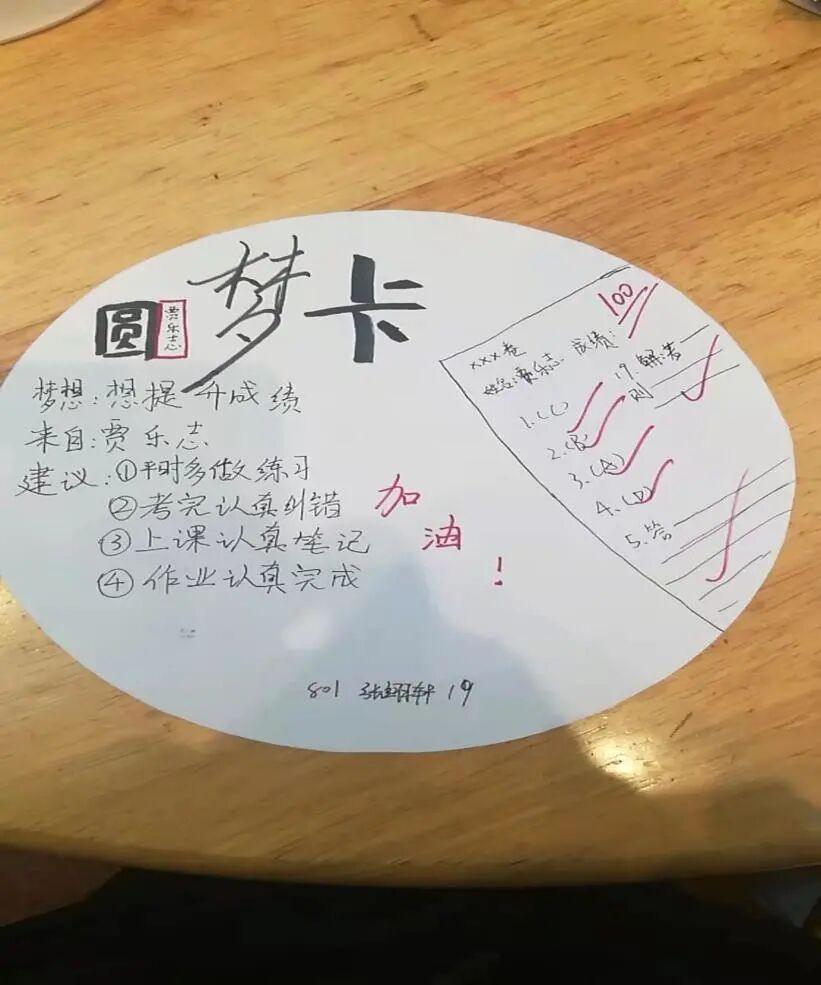 圆梦卡
贾乐志
梦想：想提升成绩
来自：贾乐志
建议：①平时多做练习
②考完认真纠错
③上课认真笔记
④作业认真完成
加油！
801 轩 19
100
xxx卷
姓名：贾乐志 成绩：
1.(C)
2.(B)
3.(A)
4.(D)
5.答
17.解：
则